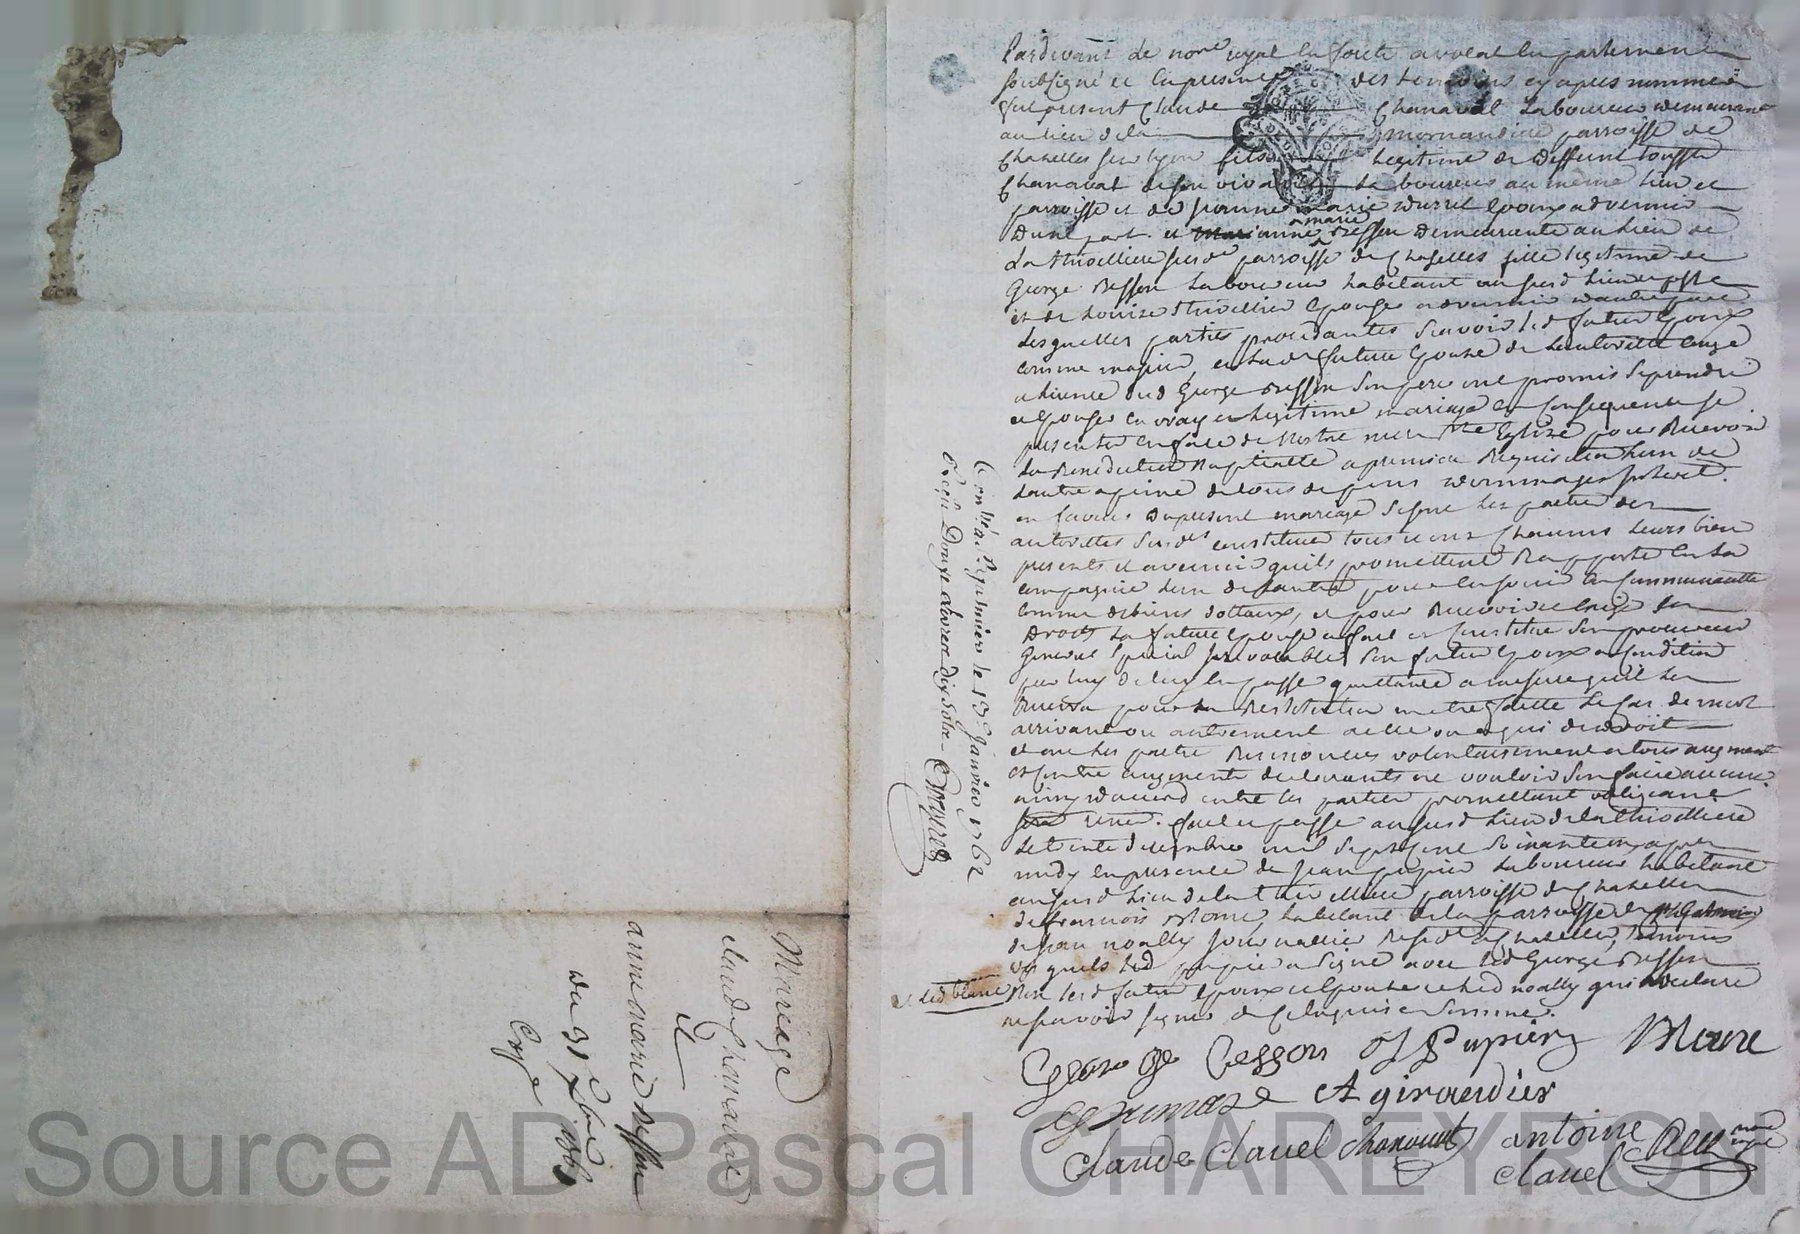 Pardevant le no.re royal en forest avocat en parlement
soubsigné et en presence des temoins cy apres nommes
fut present Claude Chanavat Laboureur demeurant
au lieu de la mornandiere parroisse de
Chazelles sur lyon fils legitime de deffunt
Chanavat de son vivant Laboureur au même lieu et
parroisse et de marie epoux advenir
D'une part. et anne marie Besson demeurante au lieu de
La thiolliere susd.e parroisse de Chazelles fille legitime de
George Besson Laboureur habitant au susd lieu
et de Louise epouse advenir d'autre part
Lesquelles parties procedantes scavoir led futur Epoux
comme majeur, et lad future Epouse de l'autorité congé
et licence dud George Besson son pere ont promis se prendre
et epouser en vray et legitime mariage en consequence se
presenter en face de Nostre mere s.te Eglise pour Recevoir
La Benediction Nuptialle a premiere Requisition l'un de
l'autre a peine de tous depens dommages interest.
en faveur du present mariage se sont les parties de
autorittes susd.es constitué tous et uns chacuns leurs bien
presents et avenir qu'ils promettent Rapporter en la
compagnie l'un de l'autre pour en jouir en Communauté
comme de biens dottaux, et pour Recevoir et exiger ses
Droits La future Epouse a fait et constitué son procureur
General special irrevocable son futur Epoux a Condition
par luy de luy en passer quittance a mesure qu'il les
Recevra pour la Restitution en etre faitte le cas de mort
arrivant ou autrement a elle ou a qui de droit
et ont les parties Renoncées volontairement a tous augment
et contre augment declarants ne vouloir s'en faire aucuns
ainsy d'accord entre les parties promettant obligeant
Renon. fait et passé au susd lieu de la thiolliere
Le trente decembre mil sept cent soixante un apres
midy en presence de Jean pupier Laboureur habitant
au susd lieu de la thiolliere parroisse de Chazelles
de francois More, habitant de la parroisse de
de Jean noally Journallier Resid.t a Chazelles, temoins
desquels led pupier a signé avec led George Besson
Non lesd futur epoux et Epouse et led noally qui ont declaré
ne scavoir signer de ce enquis et sommé.
George Besson J Pupier More
A giraudier
Claude Clavel Chanavat antoine
Clavel
Con.lle a le 13.e Janvier 1762
Reçu Douze Livres dix sols
Mariage
claude chanavat
Et
anne marie Besson
du 31.e Xbre 1761